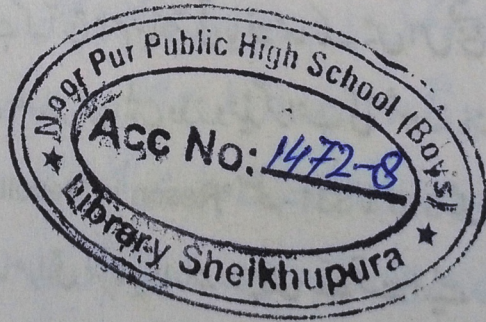 Noor Pur Public High School (Boys)
Acc No: 1472-8
Library Sheikhupura